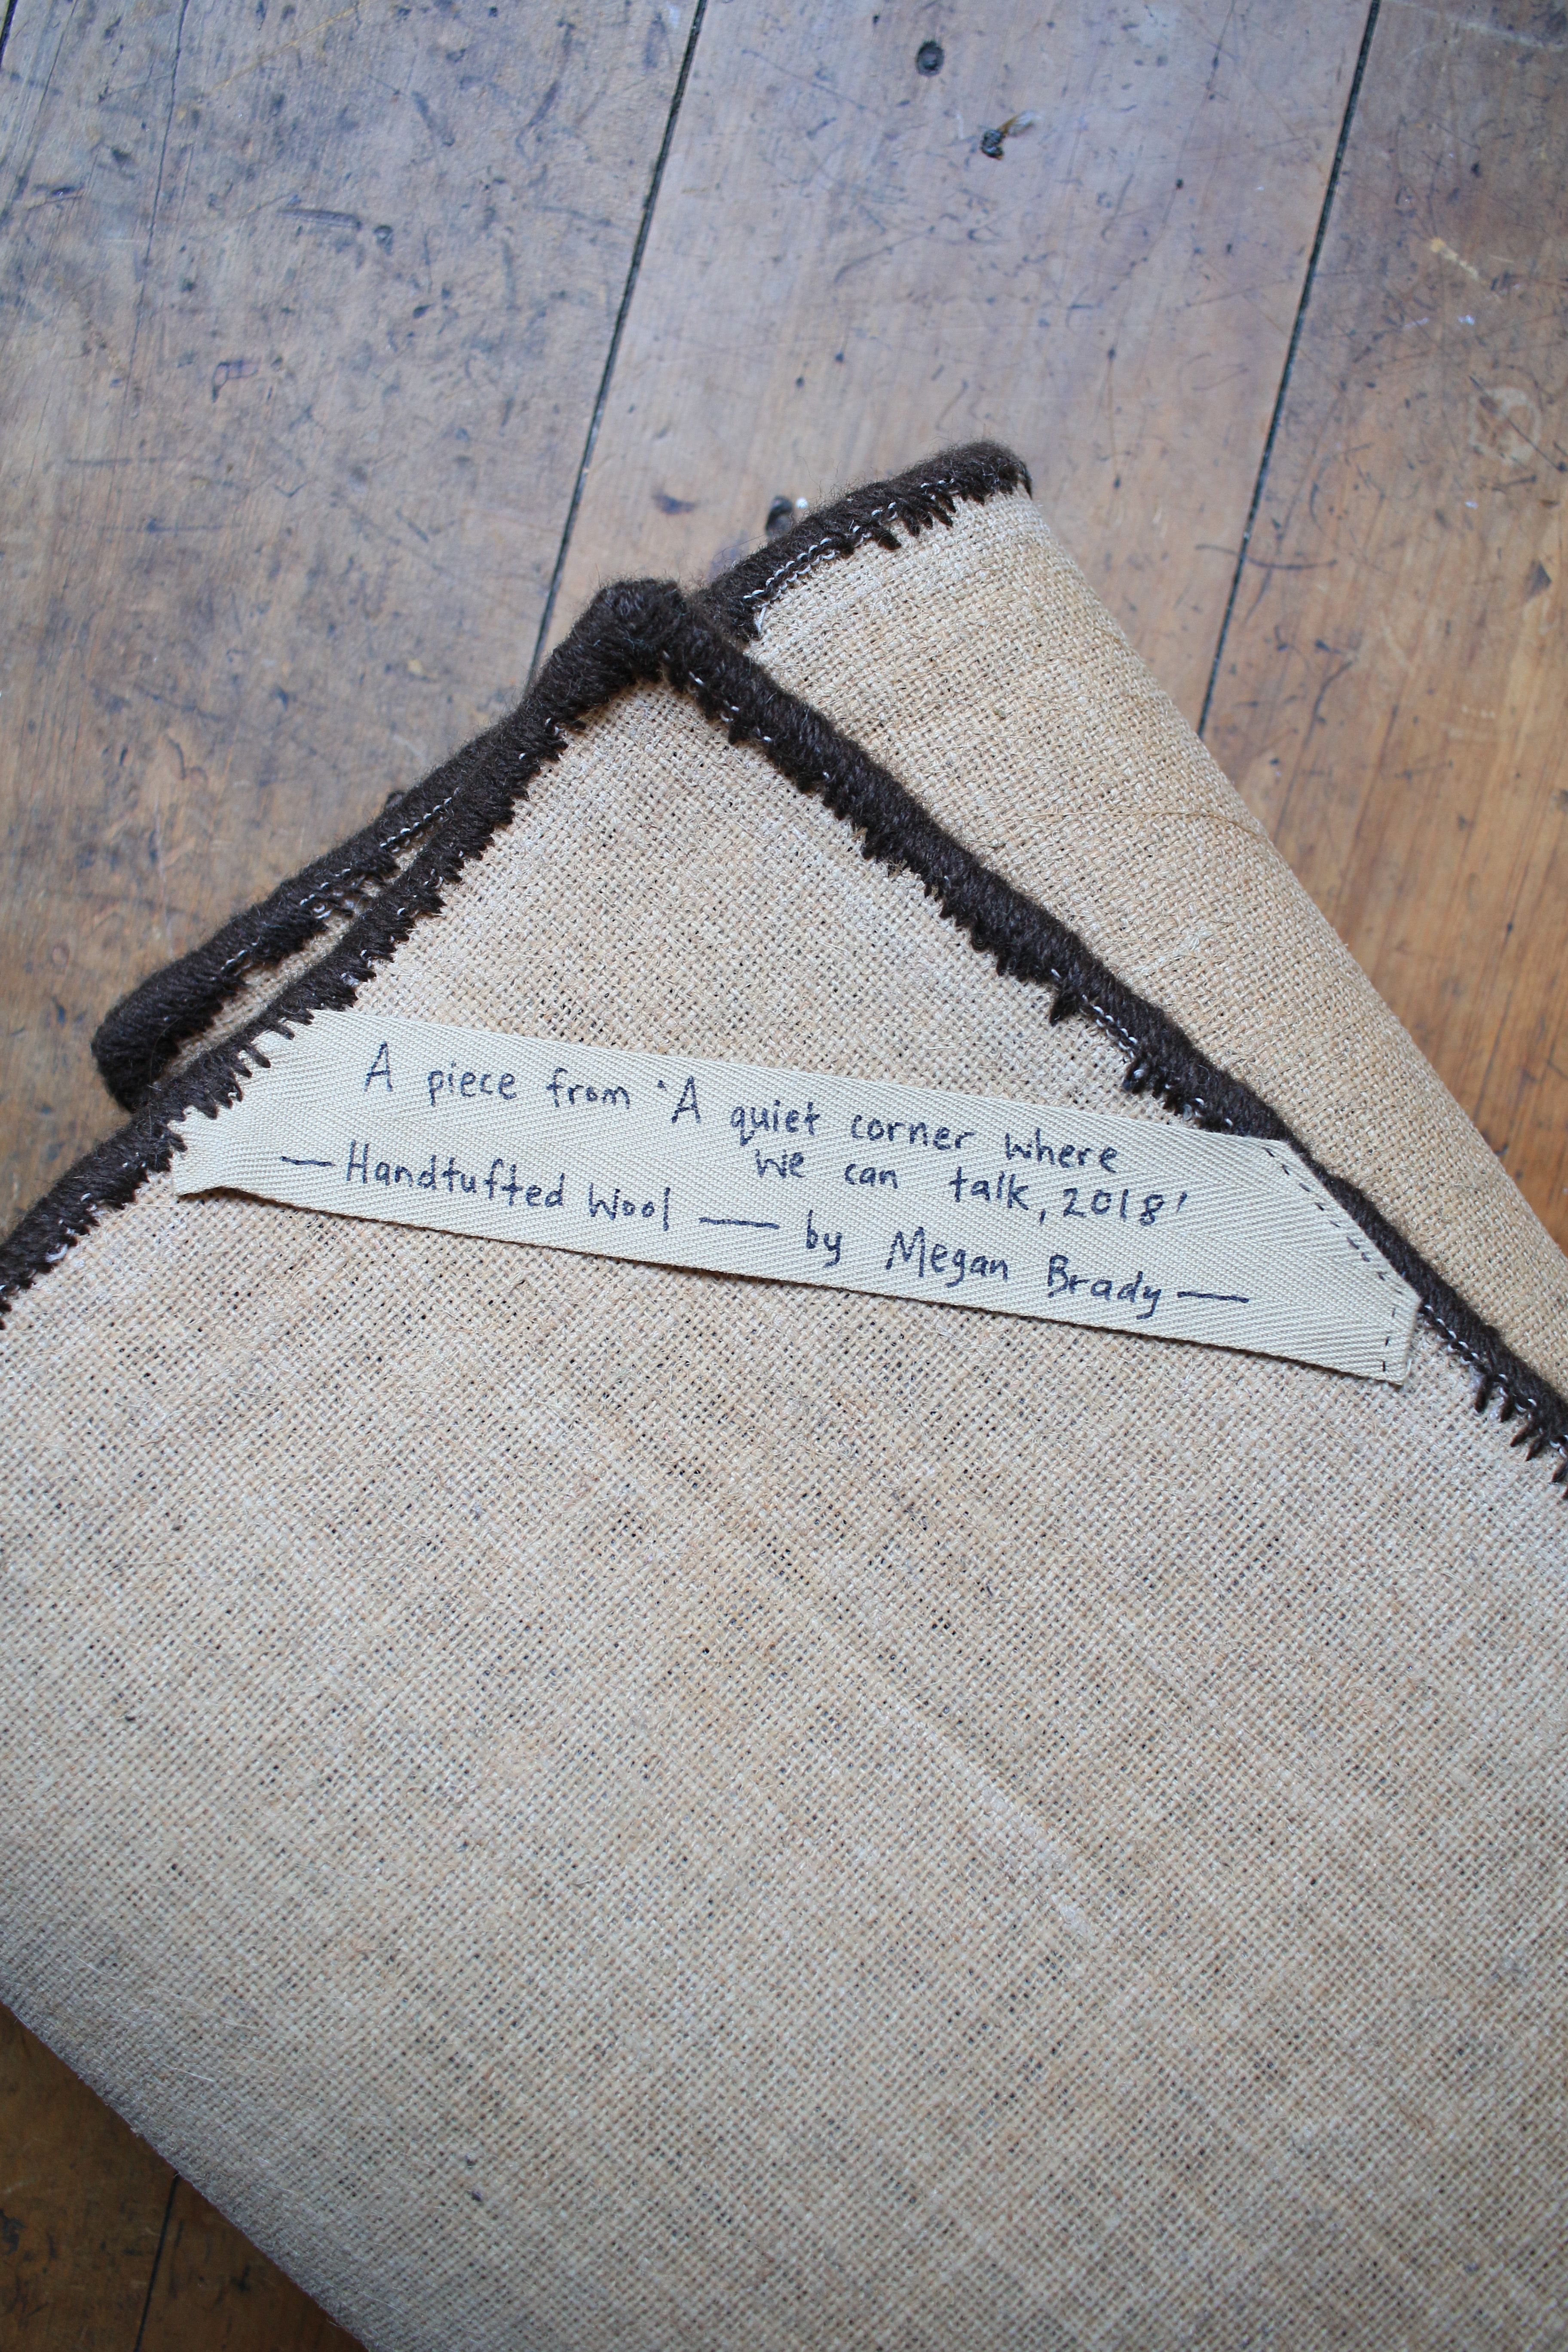 A piece from 'A quiet corner where
we can talk, 2018'
—Handtufted Wool — by Megan Brady—